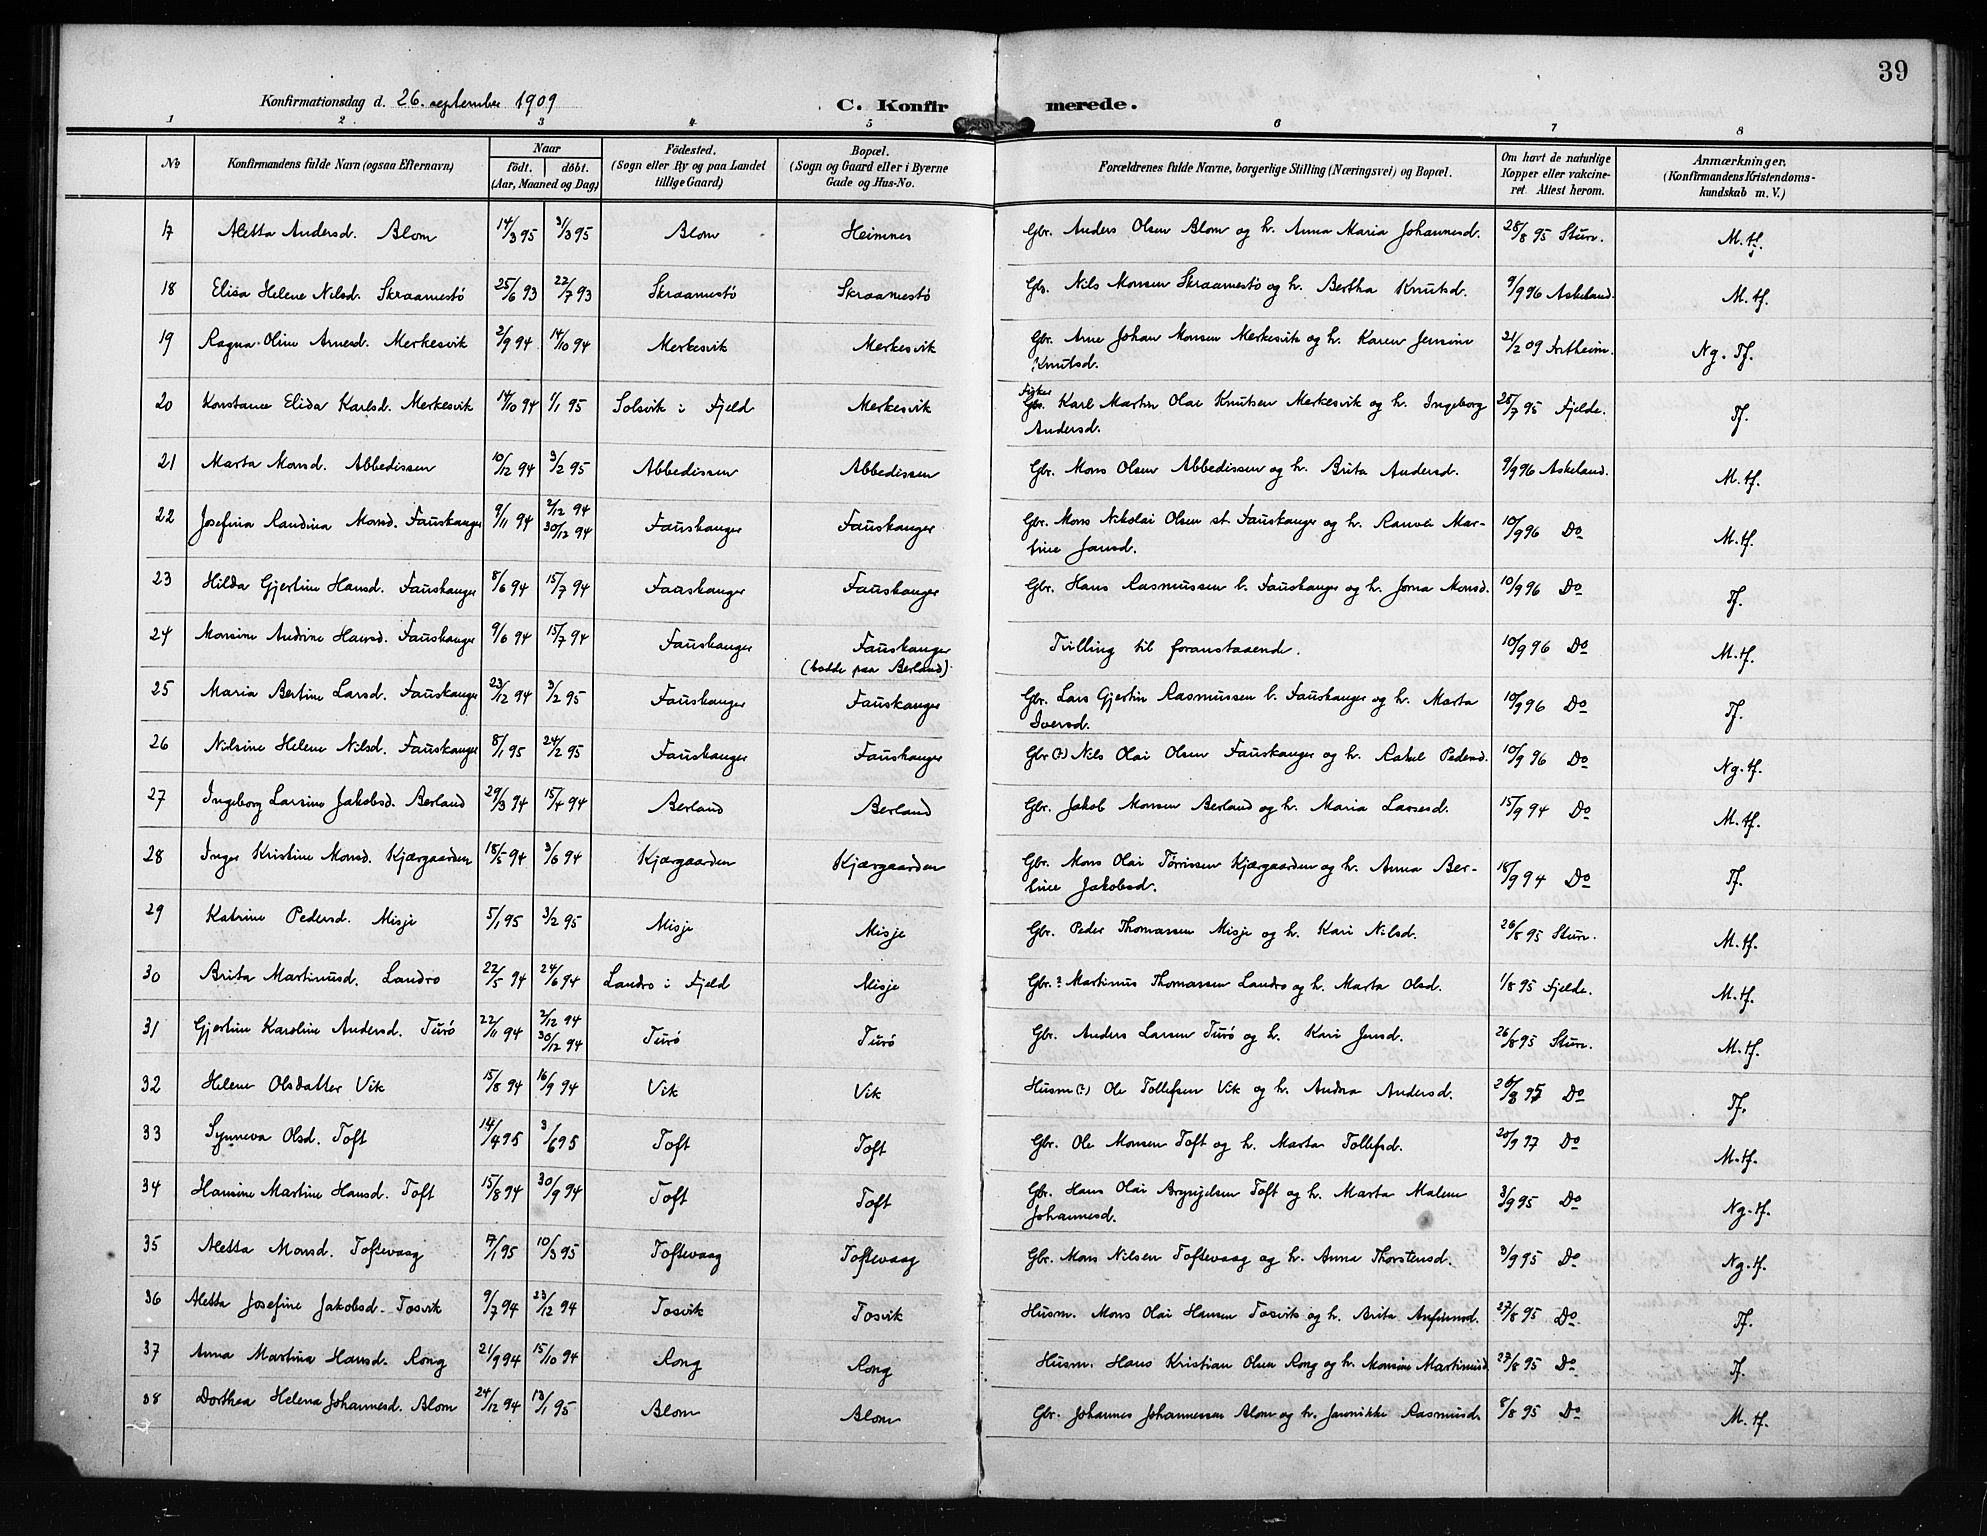 39
Konfirmationsdag d. 26. september 1909
C. Konfirmerede.
1 2 3 4 5 6 7 8
No
Konfirmandens fulde Navn (ogsaa Efternavn)
Naar
födt. döbt.
(Aar, Maaned og Dag)
Födested.
(Sogn eller By og paa Landet
tillige Gaard)
Bopæl.
(Sogn og Gaard eller i Byerne
Gade og Hus-No.
Forældrenes fulde Navne, borgerlige Stilling (Næringsvei) og Bopæl.
Om havt de naturlige
Kopper eller vakcine-
ret. Attest herom.
Anmærkninger.
(Konfirmandens Kristendoms-
kundskab m. V.)
17 Aletta Andersd. Blom 14/3 95 31/3 95 Blom Heimnes Gbr. Anders Olsen Blom og h. Anna Maria Johannesd. 28/8 95 Sture. M. tf.
18 Elisa Helene Nilsd. Skraamestö 25/6 93 22/7 93 Skraamestö Skraamestö Gbr. Nils Monsen Skraamestö og h. Bertha Knutsd. 9/9 96 Askeland. M. tf.
19 Ragna Oline Arnesd. Merkesvik 2/9 94 14/10 94 Merkesvik Merkesvik Gbr. Arne Johan Monsen Merkesvik og h. Karen Jensine
Knutsd. 21/2 09 Ng. Tf.
20 Konstance Elida Karlsd. Merkesvik 14/10 94 1/1 95 Solsvik i Fjeld Merkesvik Fisker Gbr. Karl Martin Olai Knutsen Merkesvik og h. Ingeborg
Andersd. 25/7 95 Fjelde. Tf.
21 Marta Monsd. Abbedissen 10/12 94 3/2 95 Abbedissen Abbedissen Gbr. Mons Olsen Abbedissen og h. Brita Andersd. 9/9 96 Askeland. M. tf.
22 Josefina Randina Monsd. Fauskanger 9/11 94 2/12 94
30/12 94 Fauskanger Fauskanger Gbr. Mons Nikolai Olsen st. Fauskanger og h. Ranvei Mar-
tine Jansd. 10/9 96 Do M. tf.
23 Hilda Gjertine Hansd. Fauskanger 8/6 94 15/7 94 Fauskanger Fauskanger Gbr. Hans Rasmussen l. Fauskanger og h. Jorna Monsd. 10/9 96 Do Tf.
24 Monsine Andrine Hansd. Fauskanger 9/6 94 15/7 94 Fauskanger Fauskanger
(bodde paa Berland) Tvilling til foranstaaende. 10/9 96 Do M. tf.
25 Maria Bertine Larsd. Fauskanger 23/12 94 3/2 95 Fauskanger Fauskanger Gbr. Lars Gjertin Rasmussen l. Fauskanger og h. Marta
Iversd. 10/9 96 Do Tf.
26 Nilsine Helene Nilsd. Fauskanger 8/1 95 24/2 95 Fauskanger Fauskanger Gbr (?) Nils Olai Olsen Fauskanger og h. Rakel Pedersd. 10/9 96 Do Ng. tf.
27 Ingeborg Larsine Jakobsd. Berland 29/3 94 15/4 94 Berland Berland Gbr. Jakob Monsen Berland og h. Maria Larsesd. 15/9 94 Do M. tf.
28 Inger Kristine Monsd. Kjærgaarden 18/5 94 3/6 94 Kjærgaarden Kjærgaarden Gbr. Mons Olai Törrissen Kjærgaarden og h. Anna Ber-
tine Jakobsd. 18/9 94 Do Tf.
29 Katrine Pedersd. Misje 5/1 95 3/2 95 Misje Misje Gbr. Peder Thomassen Misje og h. Kari Nilsd. 26/8 95 Sture. M. tf.
30 Brita Martinusd. Landro 22/5 94 24/6 94 Landro i Fjeld Misje Gbr. ? Martinus Thomassen Landro og h. Marta Olsd. 1/8 95 Fjelde. M. tf.
31 Gjertine Karoline Andersd. Turö 22/11 94 2/12 94
30/12 94 Turö Turö Gbr. Anders Larsen Turö og h. Kari Jensd. 26/8 95 Sture. M. tf.
32 Helene Olsdatter Vik 15/8 94 16/9 94 Vik Vik Husm (?) Ole Tollefsen Vik og h. Andrea Andersd. 26/8 95 Do Tf.
33 Synneva Olsd. Toft 14/4 95 3/6 95 Toft Toft Gbr. Ole Monsen Toft og h. Marta Tollefsd. 20/9 97 Do M. tf.
34 Hansine Martine Hansd. Toft 15/8 94 30/9 94 Toft Toft Gbr. Hans Olai Brynjelsen Toft og h. Marta Malene
Johannesd. 3/9 95 Do Ng. tf.
35 Aletta Monsd. Toftevaag 17/1 95 10/3 95 Toftevaag Toftevaag Gbr. Mons Nilsen Toftevaag og h. Anna Thorstensd. 3/9 95 Do Ng. tf.
36 Aletta Josefine Jakobsd. Tosvik 9/7 94 23/12 94 Tosvik Tosvik Husm. Mons Olai Hansen Tosvik og h. Brita Anfinnsd. 27/8 95 Do Tf.
37 Anna Martina Hansd. Rong 21/9 94 15/10 94 Rong Rong Husm. Hans Kristian Olsen Rong og h. Monsine Martinusd. 27/8 95 Do Tf.
38 Dorthea Helena Johannesd. Blom 24/12 94 13/1 95 Blom Blom Gbr. Johannes Johannessen Blom og h. Jannikke Rasmusd. 8/8 95 Do M. tf.